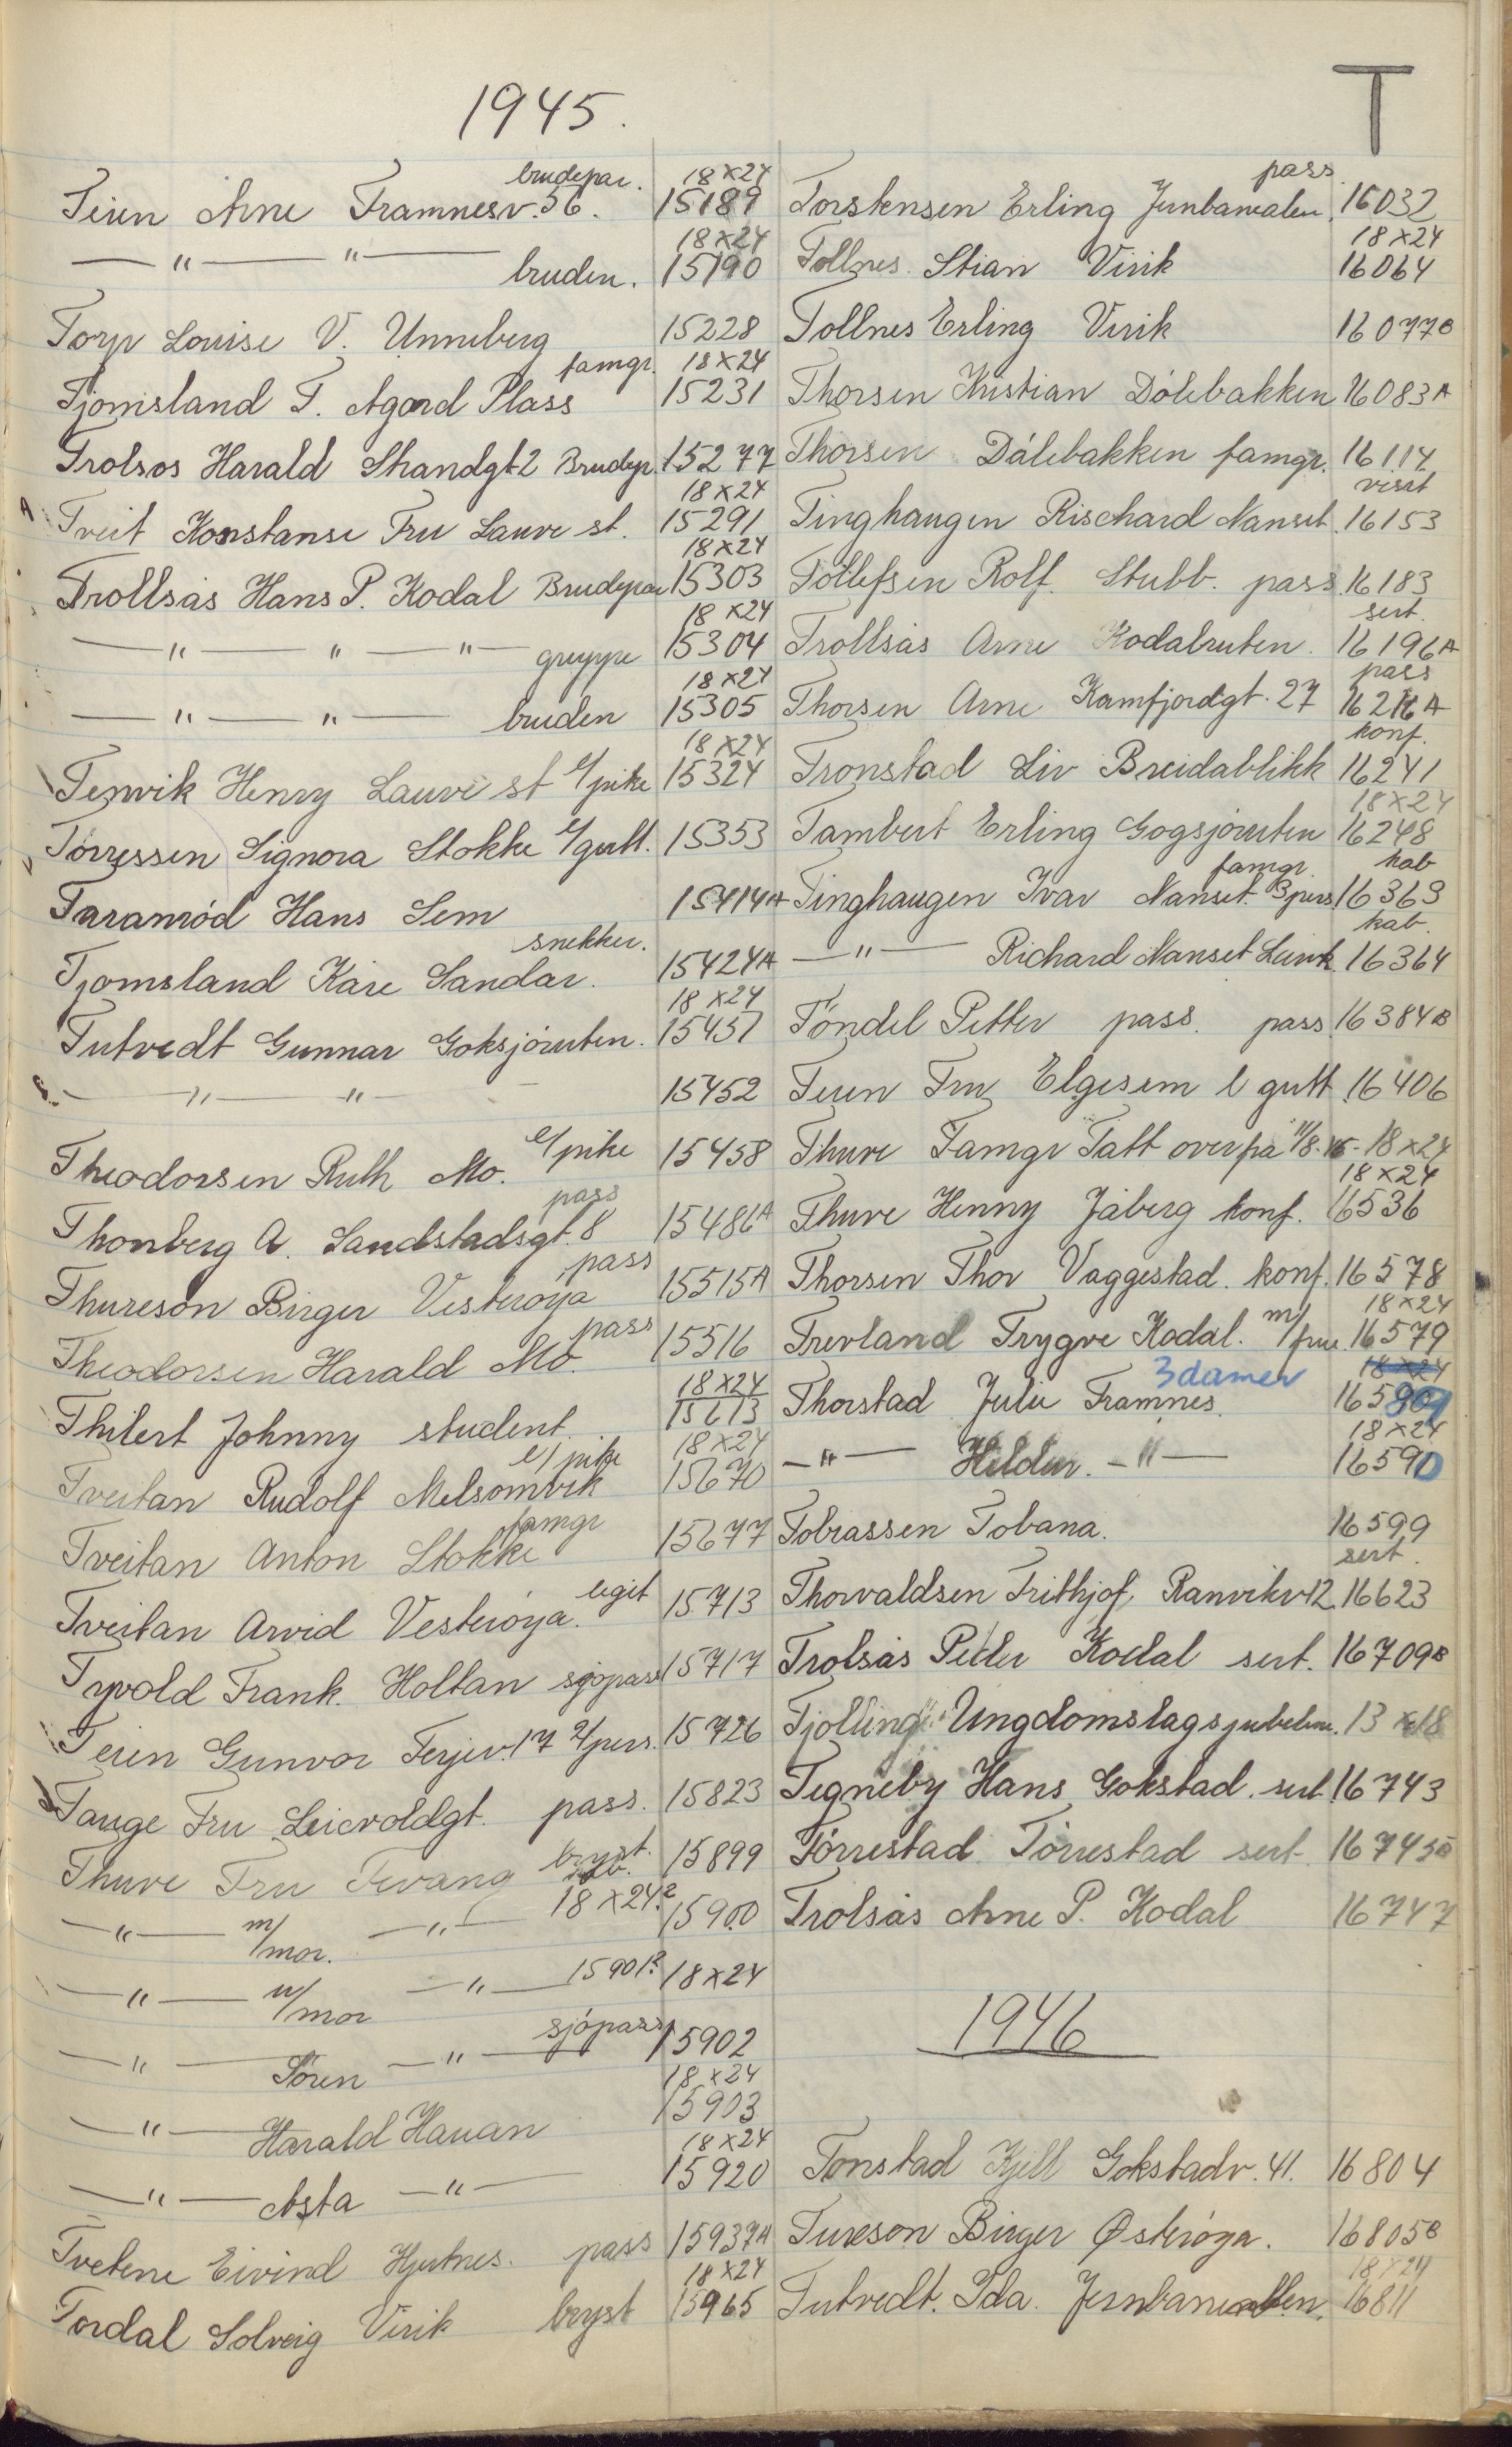 T
1945.
brudepar. 18×24
Teien Arne Framnesv. 56. 15189
18×24
— " — " — bruden. 15190
Torp Louise V. Unneberg 15228
famgr. 18×24
Tjomsland T. Agard Plass 15231
Trolsos Harald Strandgt 2 Brudepr. 15277
18×24
Tveit Konstanse Fru Lauve st. 15291
18×24
Trollsås Hans P. Kodal Brudepar 15303
18×24
— " — " — " — gruppe 15304
18×24
— " — " — bruden 15305
18×24
Tenvik Henry Lauve st 1/pike 15324
Törressen Signora Stokke 1/gutt. 15353
Taranröd Hans Sem 15414A
snekker.
Tjomsland Kåre Sandar. 15424A
18×24
Tutvedt Gunnar Goksjöruten. 15451
— " — " — 15452
l/pike
Theodorsen Ruth Mo. 15458
pass
Thonberg A. Sandstadsgt. 8 15486A
pass
Thureson Birger Vesteröya 15515A
pass
Theodorsen Harald Mo. 15516
18×24
Thilert Johnny student. 15613
l/pike 18×24
Tveitan Rudolf Melsomvik 15670
famgr
Tveitan Anton Stokke 15677
legit
Tveitan Arvid Vesteröya. 15713
Tyvold Frank. Holtan sjøpass 15717
Teien Gunvor Ferjev. 17 2/pers. 15726
Tauge Fru Leicvoldgt. pass. 15823
bryst.
Thuve Fru Tevang 15899
18×24?
— " — m/mor. — " — 15900
— " — u/mor — " — 15901? 18×24
sjöpass
— " — Sören — " — 15902
18×24
— " — Harald Hauan 15903
18×24
— " — Asta — " — 15920
Tvetene Eivind Hjertnes. pass 15937A
18×24
Tordal Solveig Virik bryst 15965
pass
Torstensen Erling Jernbanealen. 16032
18×24
Tollnes Stian Virik 16064
Tollnes Erling Virik 16077B
Thorsen Kristian Dölebakken 16083A
Thorsen Dålebakken famgr. 16114
visit
Tinghaugen Rischard Nanset. 16153
Tollefsen Rolf. Stubb. pass. 16183
sert.
Trollsås Arne Kodalruten. 16196A
pass
Thorsen Arne Kamfjordgt. 27 16216A
konf.
Tronstad Liv Breidablikk 16241
18×24
Tambert Erling Gogsjöruten 16248
famgr. kab
Tinghaugen Ivar Nanset. 3 pers 16363
kab.
— " — Richard Nanset 16364
Töndel Petter pass. pass 16384B
Teien Fru Elgesem l gutt. 16406
Thuve Famgr Tatt over på 11/8.45- 18×24
18×24
Thuve Henny Jåberg konf. 16536
Thorsen Thor Vaggestad. konf. 16578
18×24
Trevland Trygve Kodal. m/frue 16579
3 damer 18×24
Thorstad Julie Framnes. 16589
18×24
— " — Hildur. — " — 16590
Tobiassen Tobana. 16599
sert.
Thorvaldsen Frithjof. Ranvikv 12 16623
Trolsås Peder Kodal sert. 16709B
Tjölling Ungdomslags jubileum. 13×18
Tegneby Hans Gokstad. sert 16743
Törrestad Törrestad sert. 16745B
Trolsås Arne P. Kodal 16747
1946
Tonstad Kjell Gokstadv. 41. 16804
Tureson Birger Østeröya. 16805B
18×24
Tutvedt. Ida. Jernbanealleen. 16811